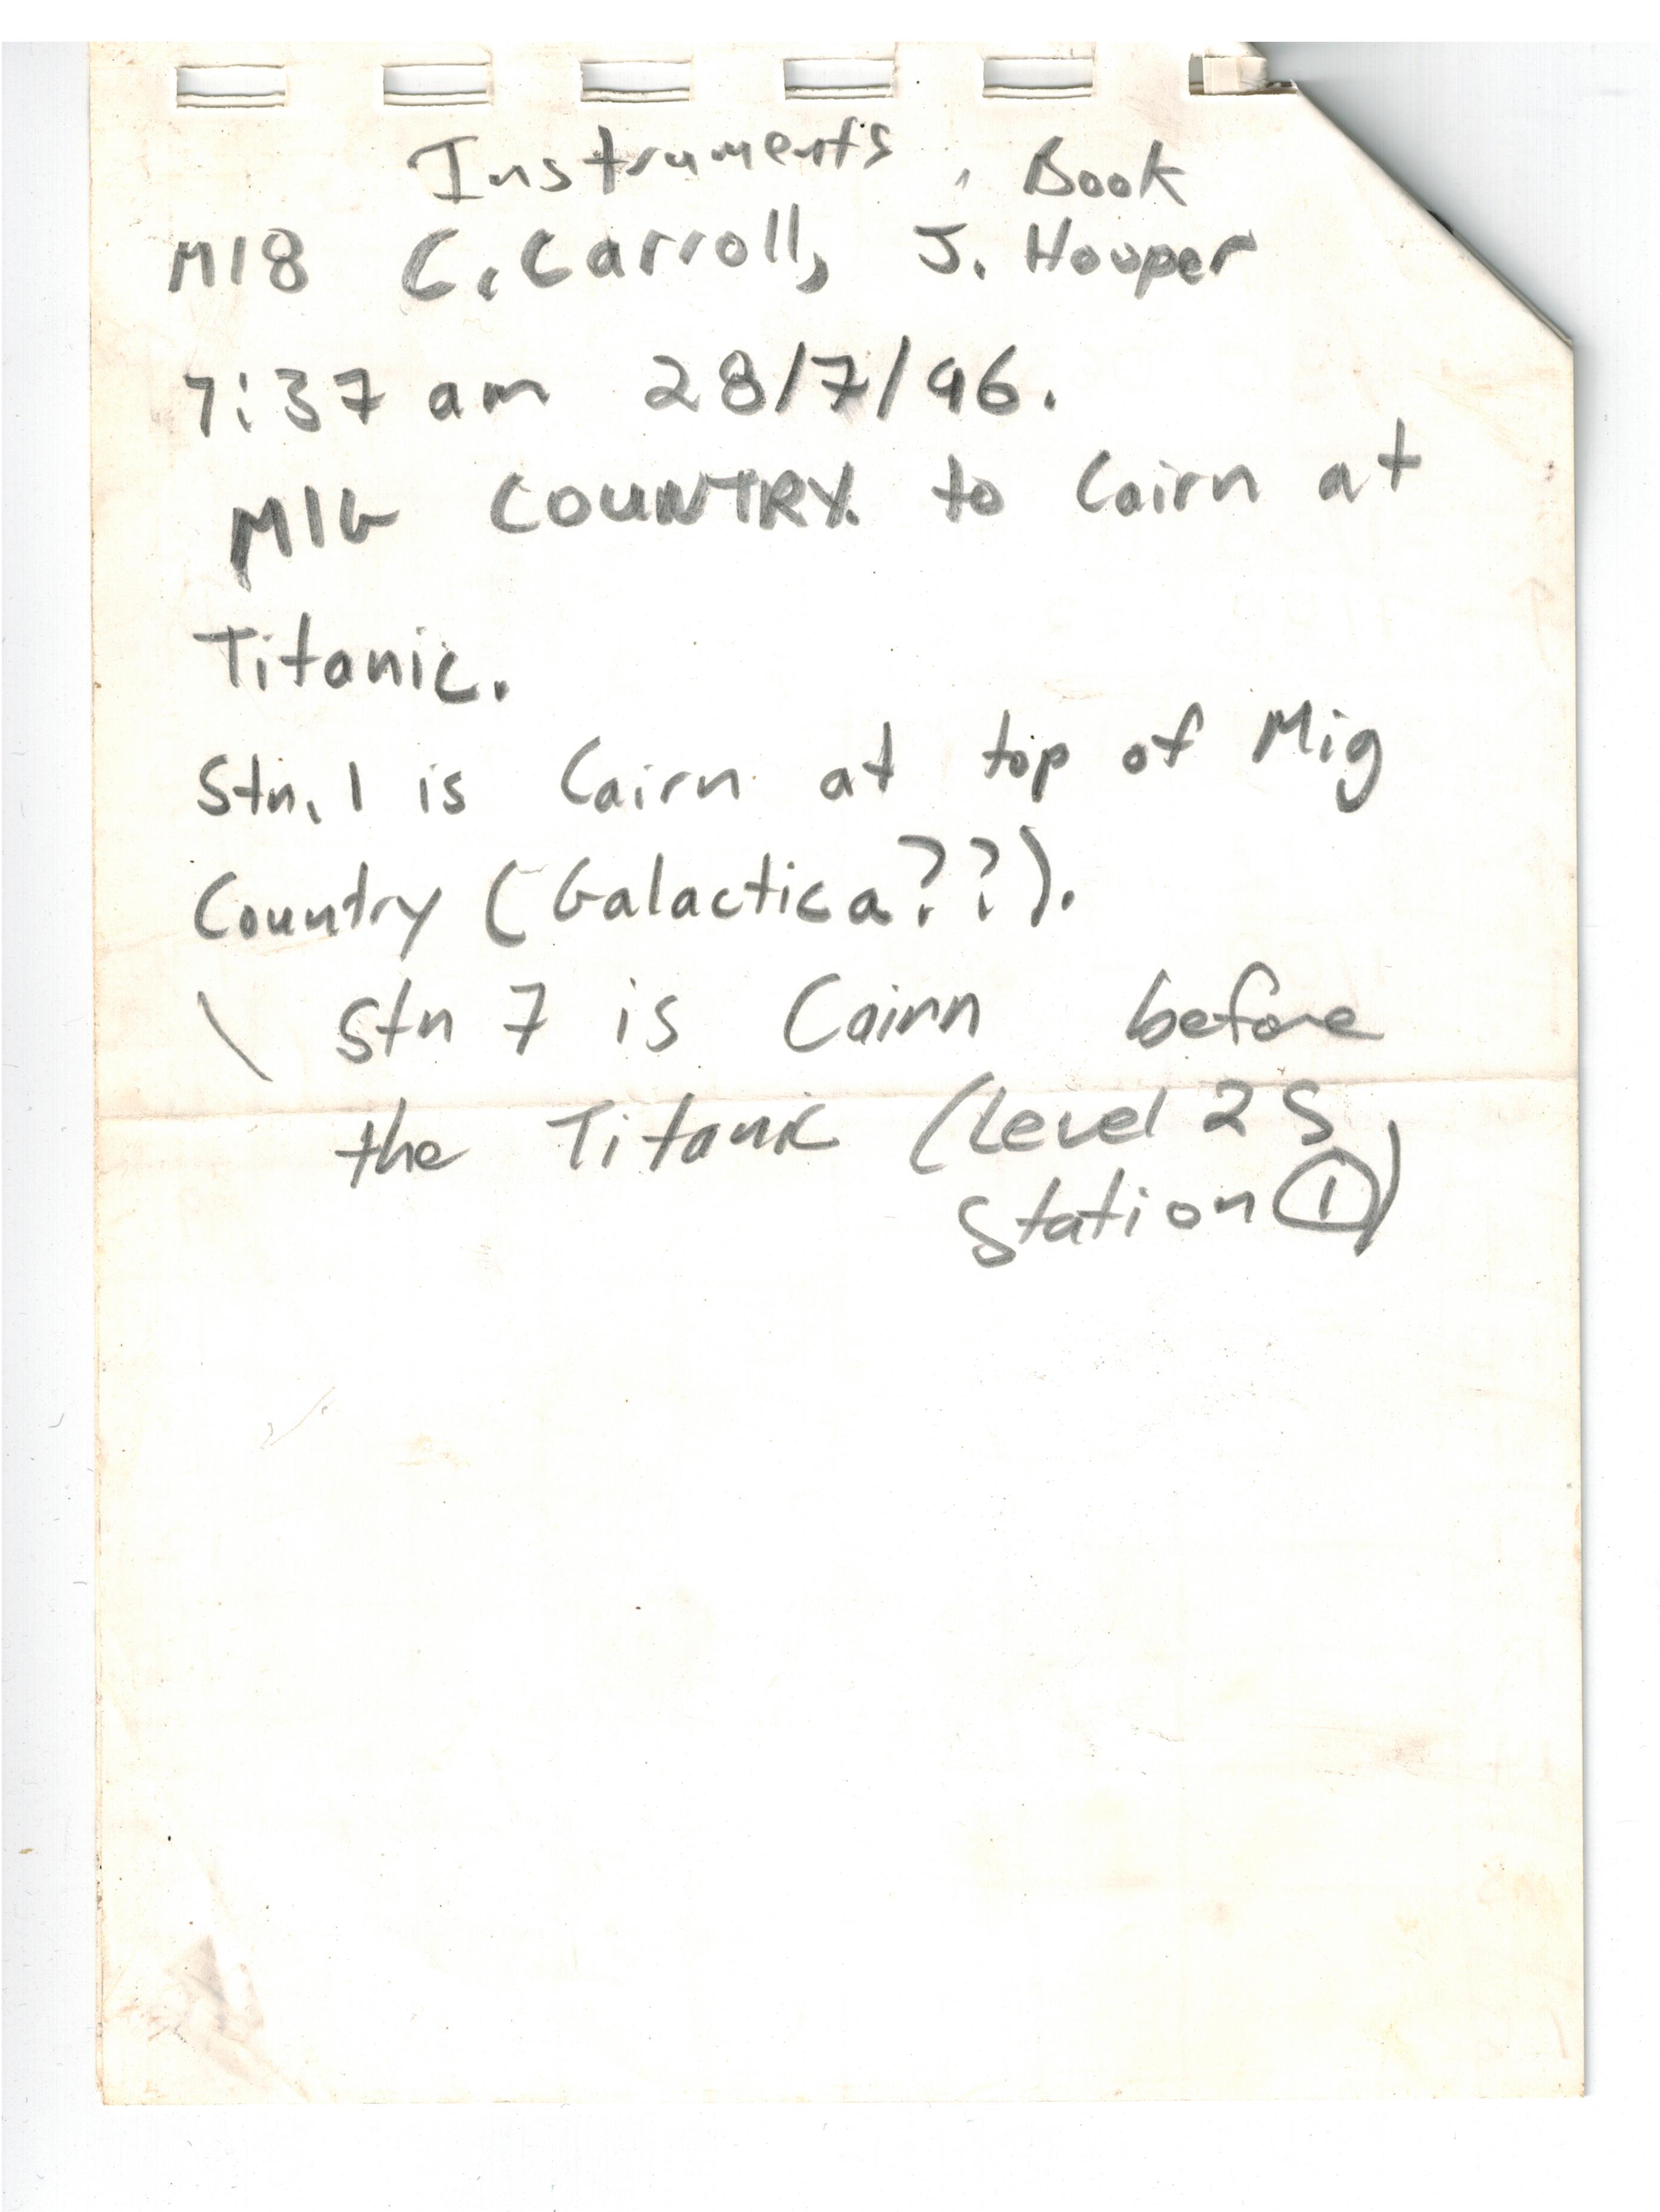 Instruments, Book
M18 C. Carroll, J. Hooper
7:37 am 28/7/96.
MIG COUNTRY to Cairn at
Titanic.
Stn. 1 is Cairn at top of Mig
Country (Galactica??).
\ Stn 7 is Cairn before
the Titanic (Level 2 S
Station ①)